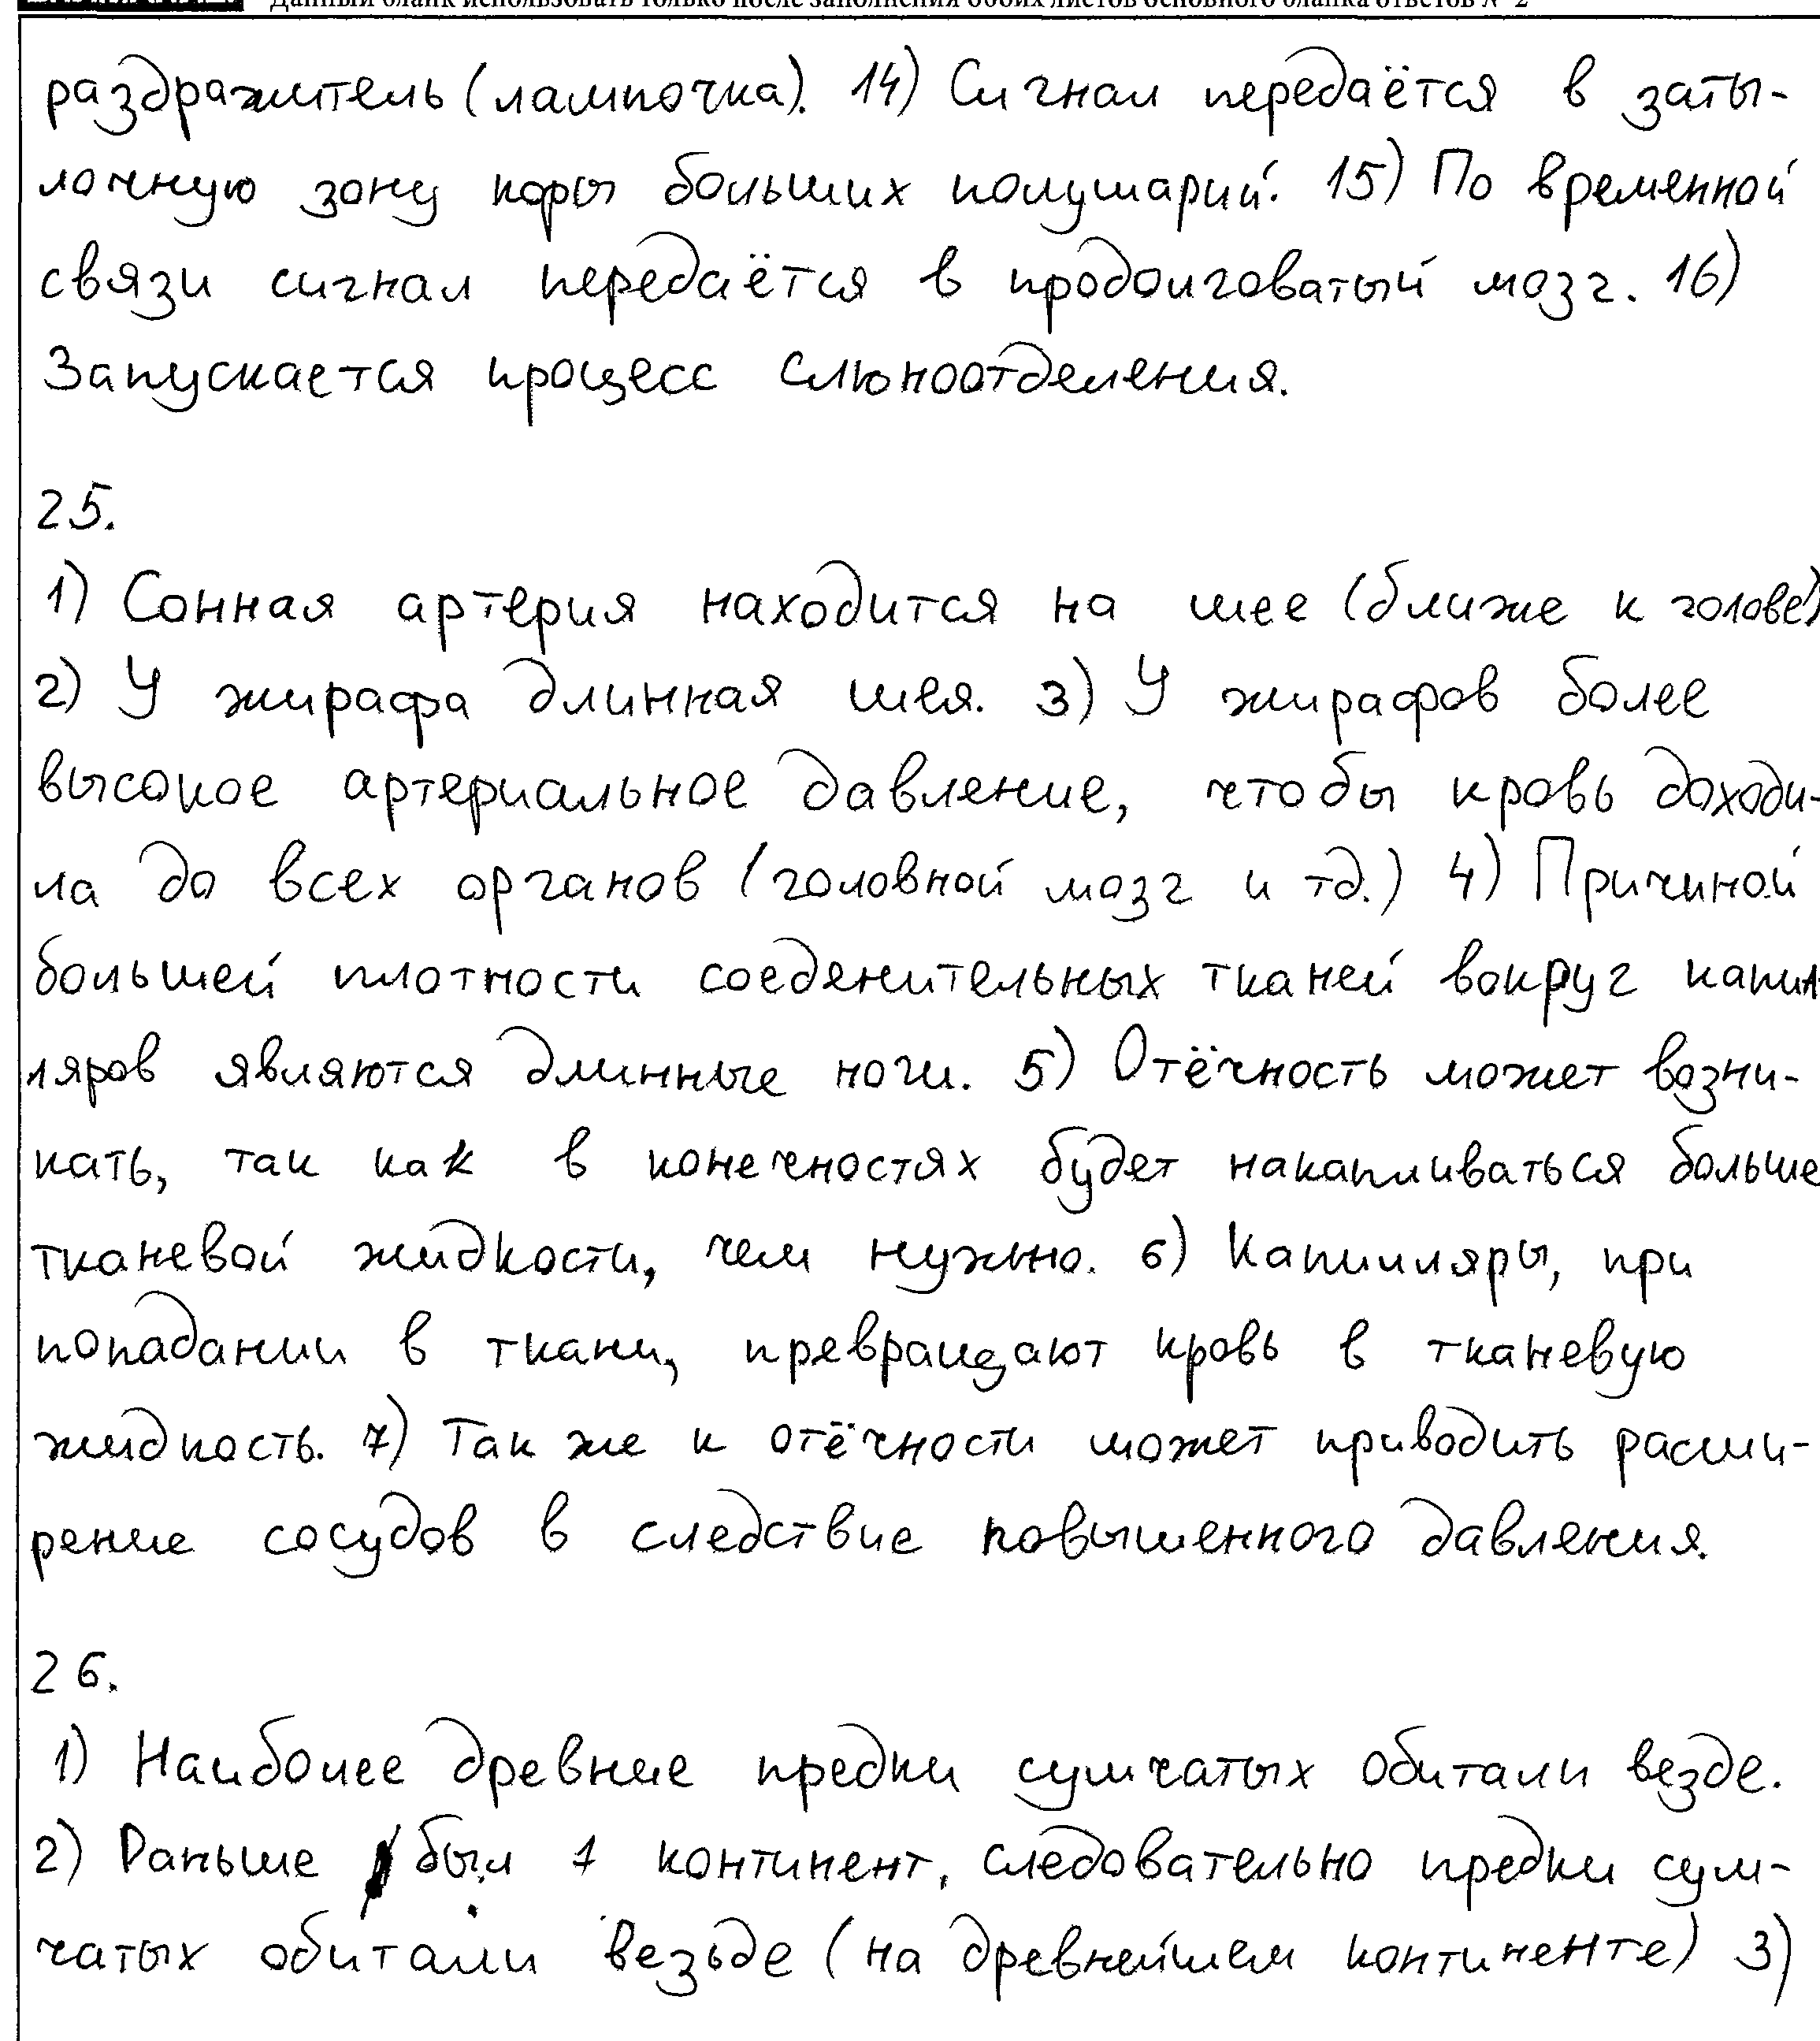 Данный бланк использовать только после заполнения обоих листов основного бланка ответов № 2
раздражитель (лампочка). 14) Сигнал передаётся в заты-
лочную зону коры больших полушарий. 15) По временной
связи сигнал передаётся в продолговатый мозг. 16)
Запускается процесс слюноотделения.
25.
1) Сонная артерия находится на шее (ближе к голове)
2) У жирафа длинная шея. 3) У жирафов более
высокое артериальное давление, чтобы кровь доходи-
ла до всех органов (головной мозг и тд.) 4) Причиной
большей плотности соеденительных тканей вокруг капил-
ляров являются длинные ноги. 5) Отёчность может возни-
кать, так как в конечностях будет накапливаться больше
тканевой жидкости, чем нужно. 6) Капилляры, при
попадании в ткани, превращают кровь в тканевую
жидкость. 7) Так же к отёчности может приводить расши-
рение сосудов в следствие повышенного давления.
26.
1) Наиболее древние предки сумчатых обитали везде.
2) Раньше был 1 континент, следовательно предки сум-
чатых обитали везьде (на древнейшем континенте) 3)